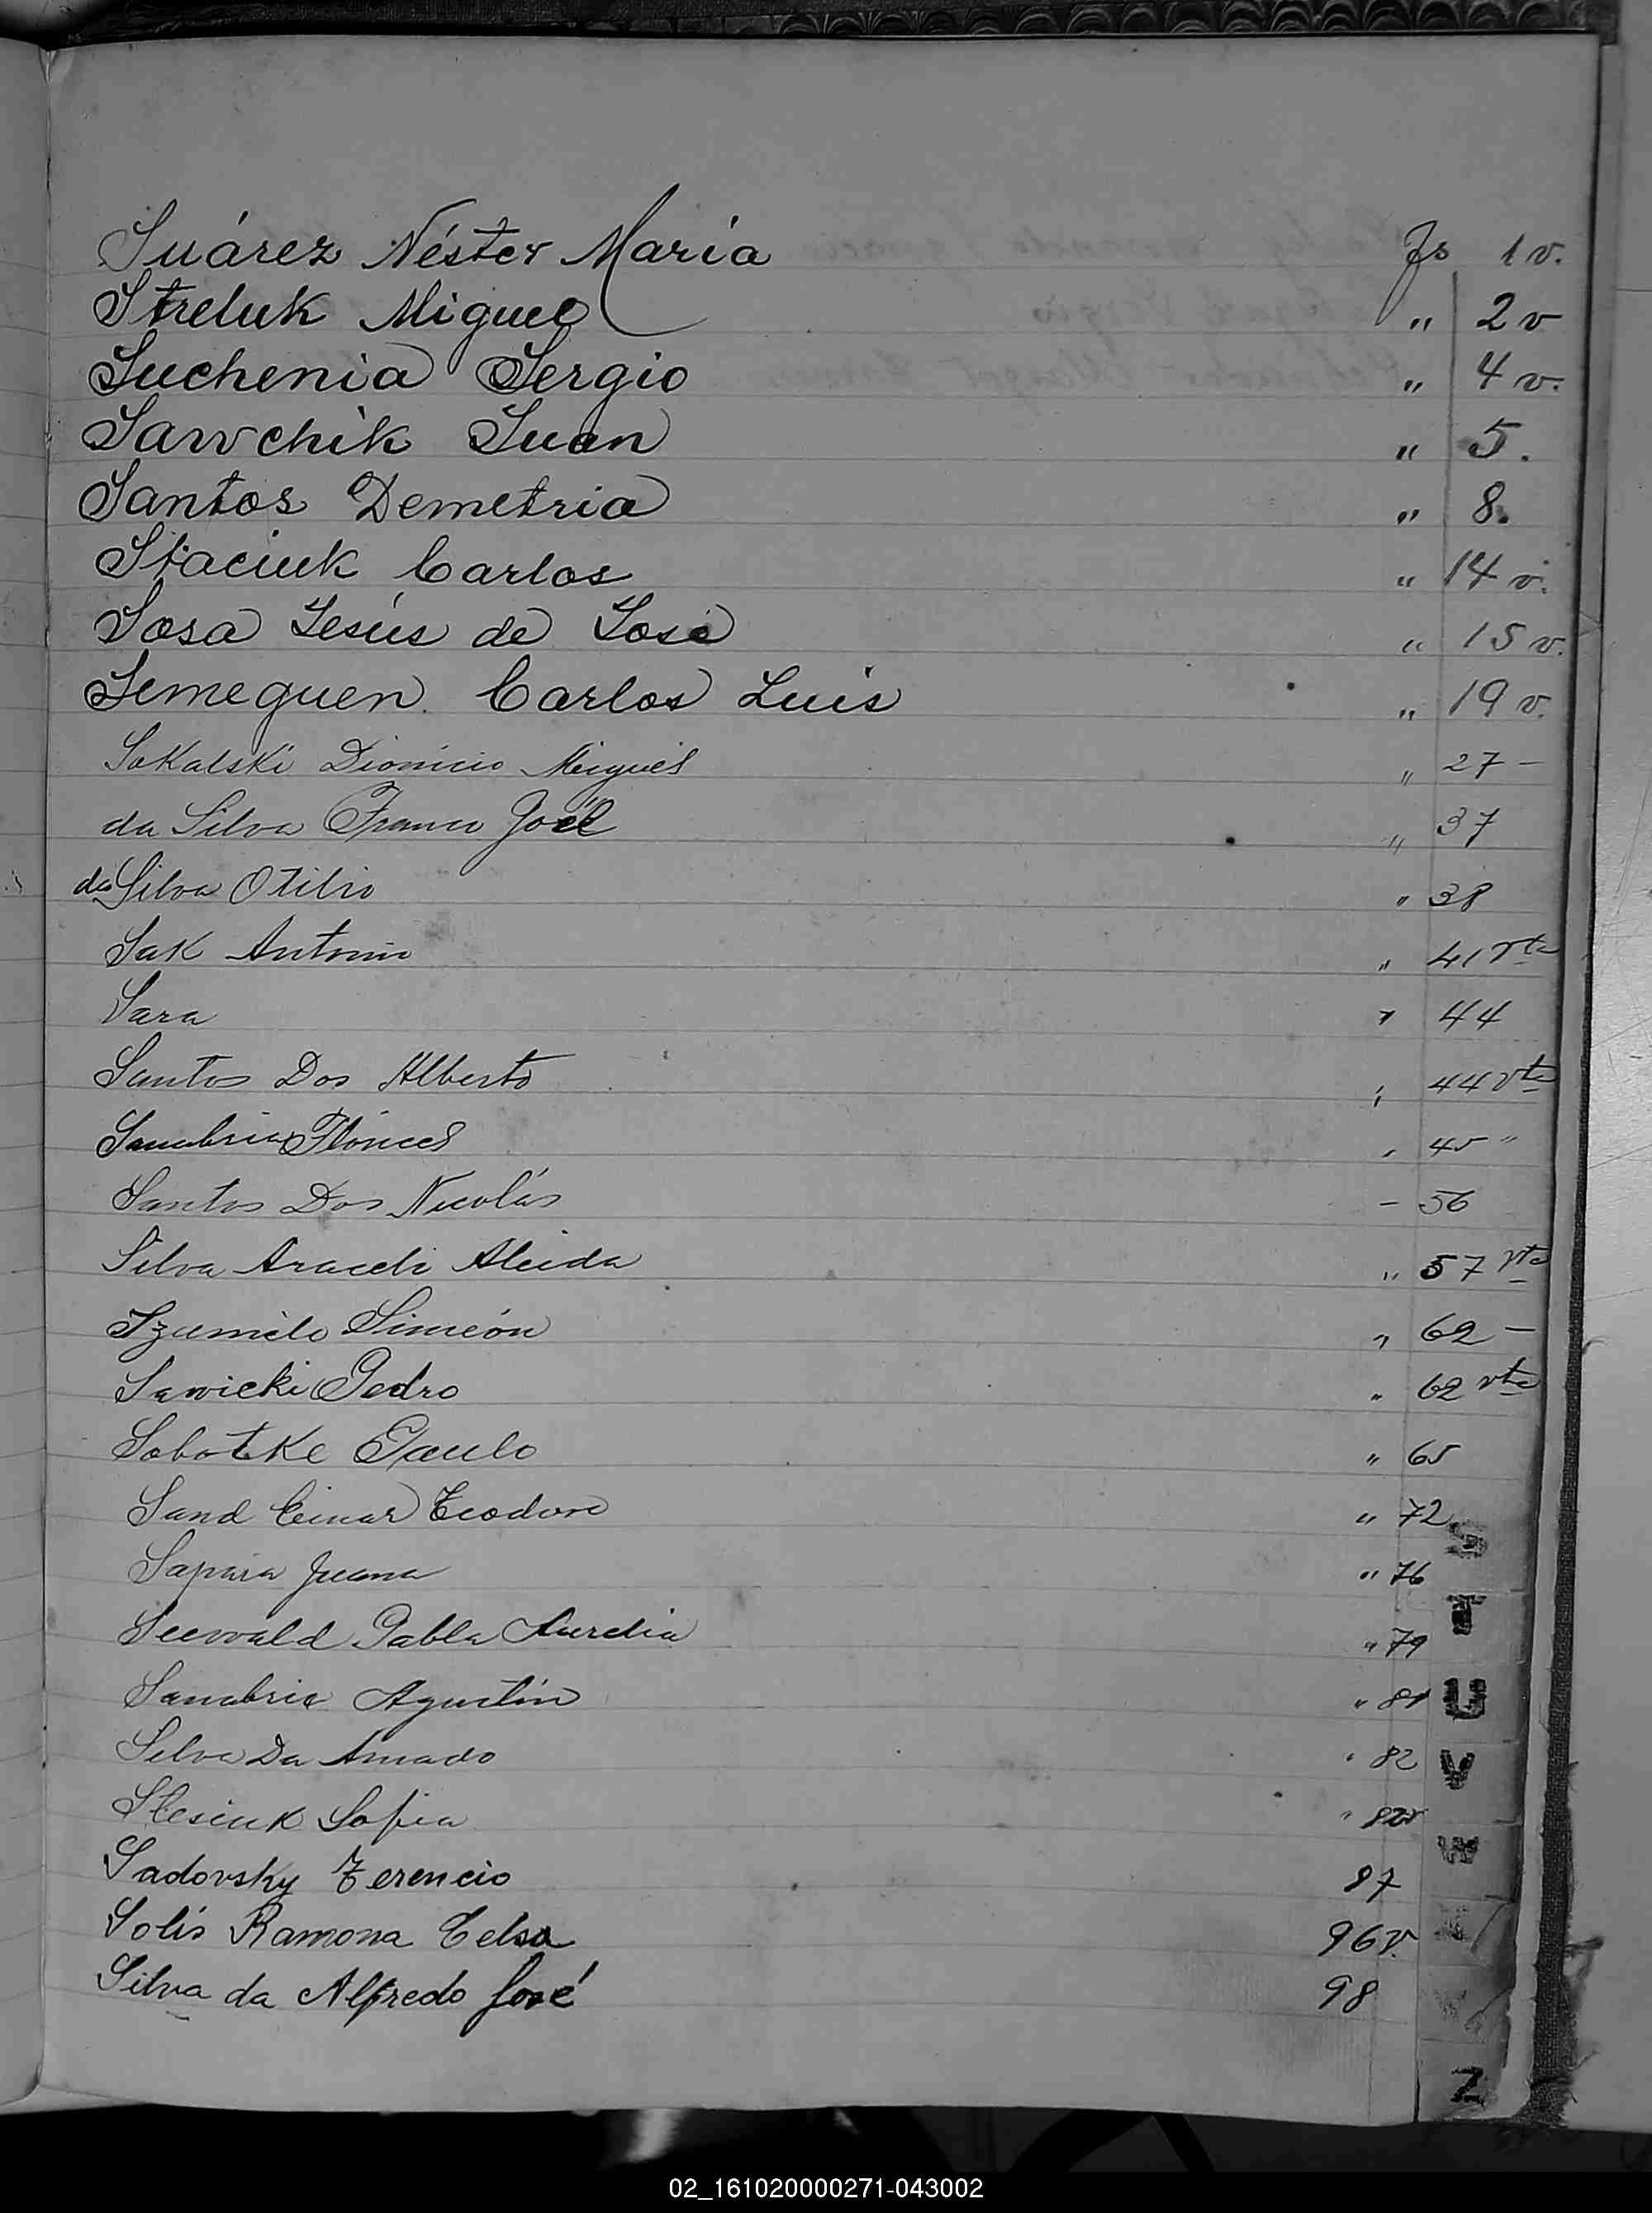 Suárez Néster María Fs 1 v.
Streluk Miguel " 2 v
Suchenia Sergio " 4 v.
Sawchik Juan " 5.
Santos Demetria " 8.
Staciuk Carlos " 14 v.
Sosa Jesús de José " 15 v.
Semeguen Carlos Luis " 19 v.
Sokalski Dionicio Miguel " 27 -
da Silva Franco Joél " 37
da Silva Otilio " 38
Sak Antonio " 41 vta
Sara " 44
Santos Dos Alberto " 44 vta
Sanabria " 45 "
Santos Dos Nicolás - 56
Silva Araceli Aleida " 57 vta
Szumilo Simeón " 62 -
Sawicki Pedro " 62 vta
Sobotke Paulo " 65
Sand Einar Teodoro " 72
Juana " 76
Seewald Pabla Aurelia " 79
Sanabria Agustín " 81
Silva Da Amado " 82
Stesiuk Sofia " 82v
Sadovsky Terencio 87
Solís Ramona Celsa 96 v.
Silva da Alfredo José 98
S
T
U
V
W
Z
02_161020000271-043002